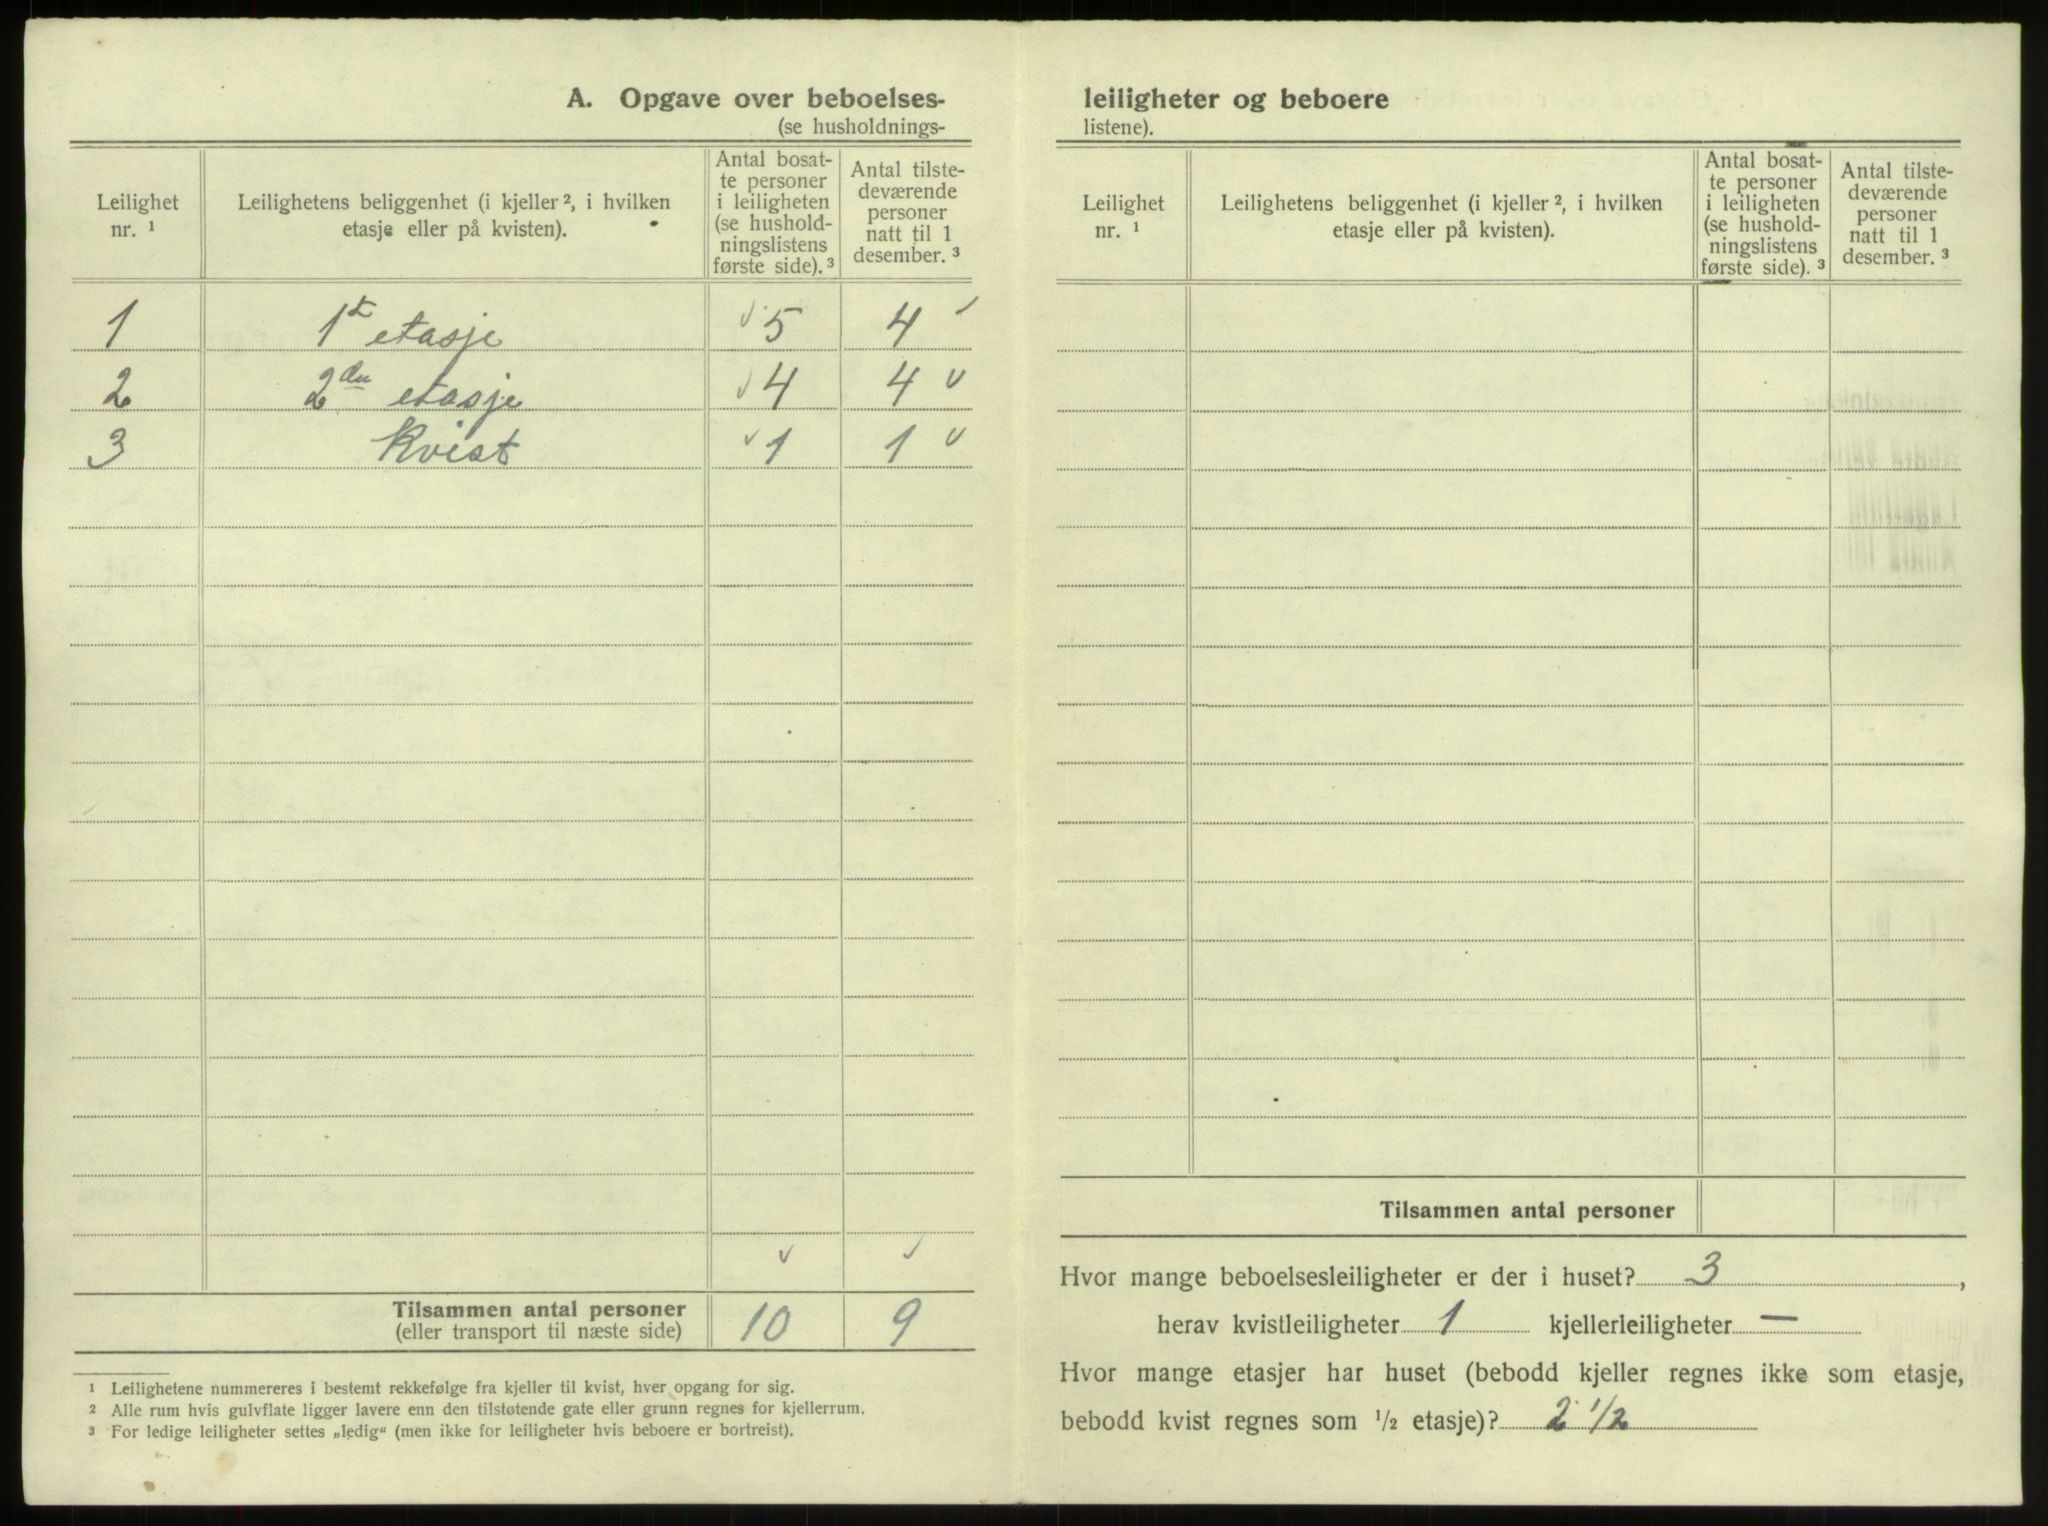 A. Opgave over beboelses-
(se husholdnings-
Leilighet
nr. ¹
Leilighetens beliggenhet (i kjeller ², i hvilken
etasje eller på kvisten).
Antal bosat-
te personer
i leiligheten
(se hushold-
ningslistens
første side). ³
Antal tilste-
deværende
personer
natt til 1
desember. ³
1 1ᵗ etasje ✓ 5 4 ✓
2 2ᵈᵉⁿ etasje ✓ 4 4 ✓
3 Kvist ✓ 1 1 ✓
✓ ✓
Tilsammen antal personer 10 9
(eller transport til næste side)
¹ Leilighetene nummereres i bestemt rekkefølge fra kjeller til kvist, hver opgang for sig.
² Alle rum hvis gulvflate ligger lavere enn den tilstøtende gate eller grunn regnes for kjellerrum.
³ For ledige leiligheter settes „ledig" (men ikke for leiligheter hvis beboere er bortreist).
leiligheter og beboere
listene).
Leilighet
nr. ¹
Leilighetens beliggenhet (i kjeller ², i hvilken
etasje eller på kvisten).
Antal bosat-
te personer
i leiligheten
(se hushold-
ningslistens
første side). ³
Antal tilste-
deværende
personer
natt til 1
desember. ³
Tilsammen antal personer
Hvor mange beboelsesleiligheter er der i huset? 3 ,
herav kvistleiligheter 1 kjellerleiligheter —
Hvor mange etasjer har huset (bebodd kjeller regnes ikke som etasje,
bebodd kvist regnes som ½ etasje)? 2 1/2